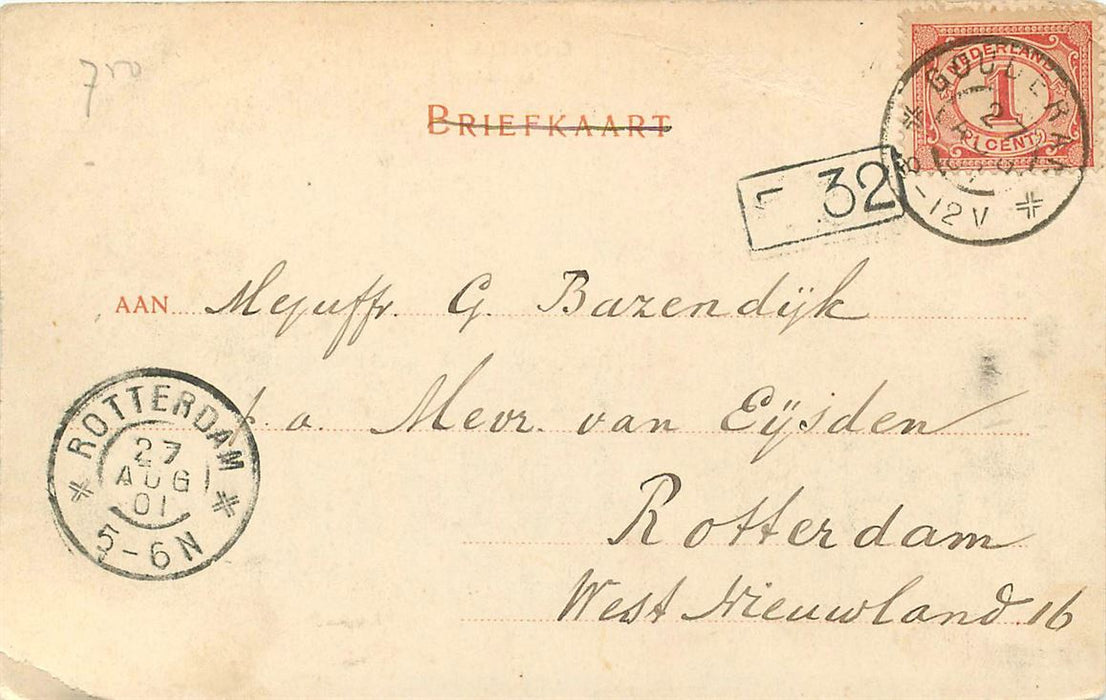 7⁵⁰
BRIEFKAART
NEDERLAND
1
1 CENT
GOUDERAK
8-12V
32
AAN Mejuffr. G. Bazendijk
p. a. Mevr. van Eijsden
Rotterdam
West Nieuwland 16
ROTTERDAM
27
AUG
01
5-6N